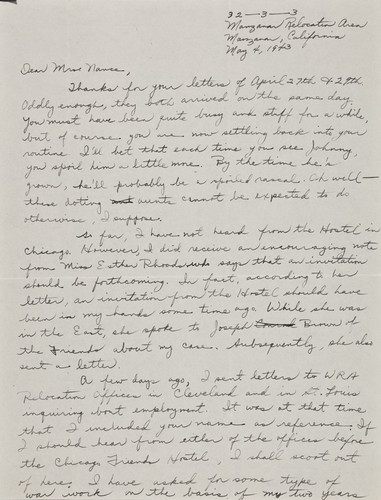 32—3—3
Manzanar Relocation Area
Manzanar, California
May 4, 1943
Dear Miss Nance,
Thanks for your letters of April 27th & 29th
Oddly enough, they both arrived on the same day.
You must have been quite busy and stiff for a while,
but of course you are now settling back into your
routine. I'll bet that each time you see Johnny,
you spoil him a little more. By the time he's
grown, he'll probably be a spoiled rascal. Oh well—
these doting aunts cannot be expected to do
otherwise, I suppose.
So far, I have not heard from the Hostel in
Chicago. However, I did receive an encouraging note
from Miss Esther Rhoads who says that an invitation
should be forthcoming. In fact, according to her
letter, an invitation from the Hostel should have
been in my hands some time ago. While she was
in the East, she spoke to Joseph Brown of
the Friends about my case. Subsequently, she also
sent a letter.
A few days ago, I sent letters to WRA
Relocation Offices in Cleveland and in St. Louis
inquiring about employment. It was at that time
that I included your name as reference. If
I should hear from either of the offices before
the Chicago Friends Hostel, I shall scoot out
of here. I have asked for some type of
war work on the basis of my two years